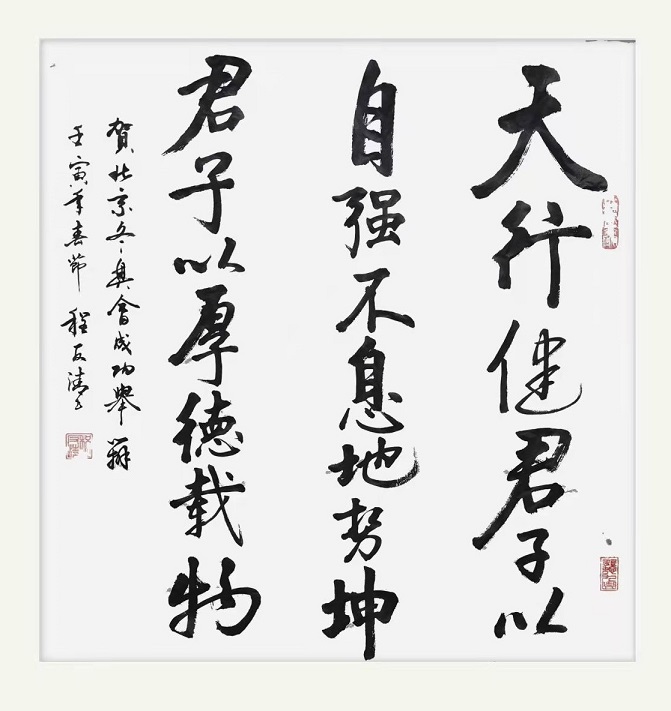 天行健君子以
自强不息地势坤
君子以厚德载物
賀北京冬奥會成功舉辦
壬寅年春節 程友清书